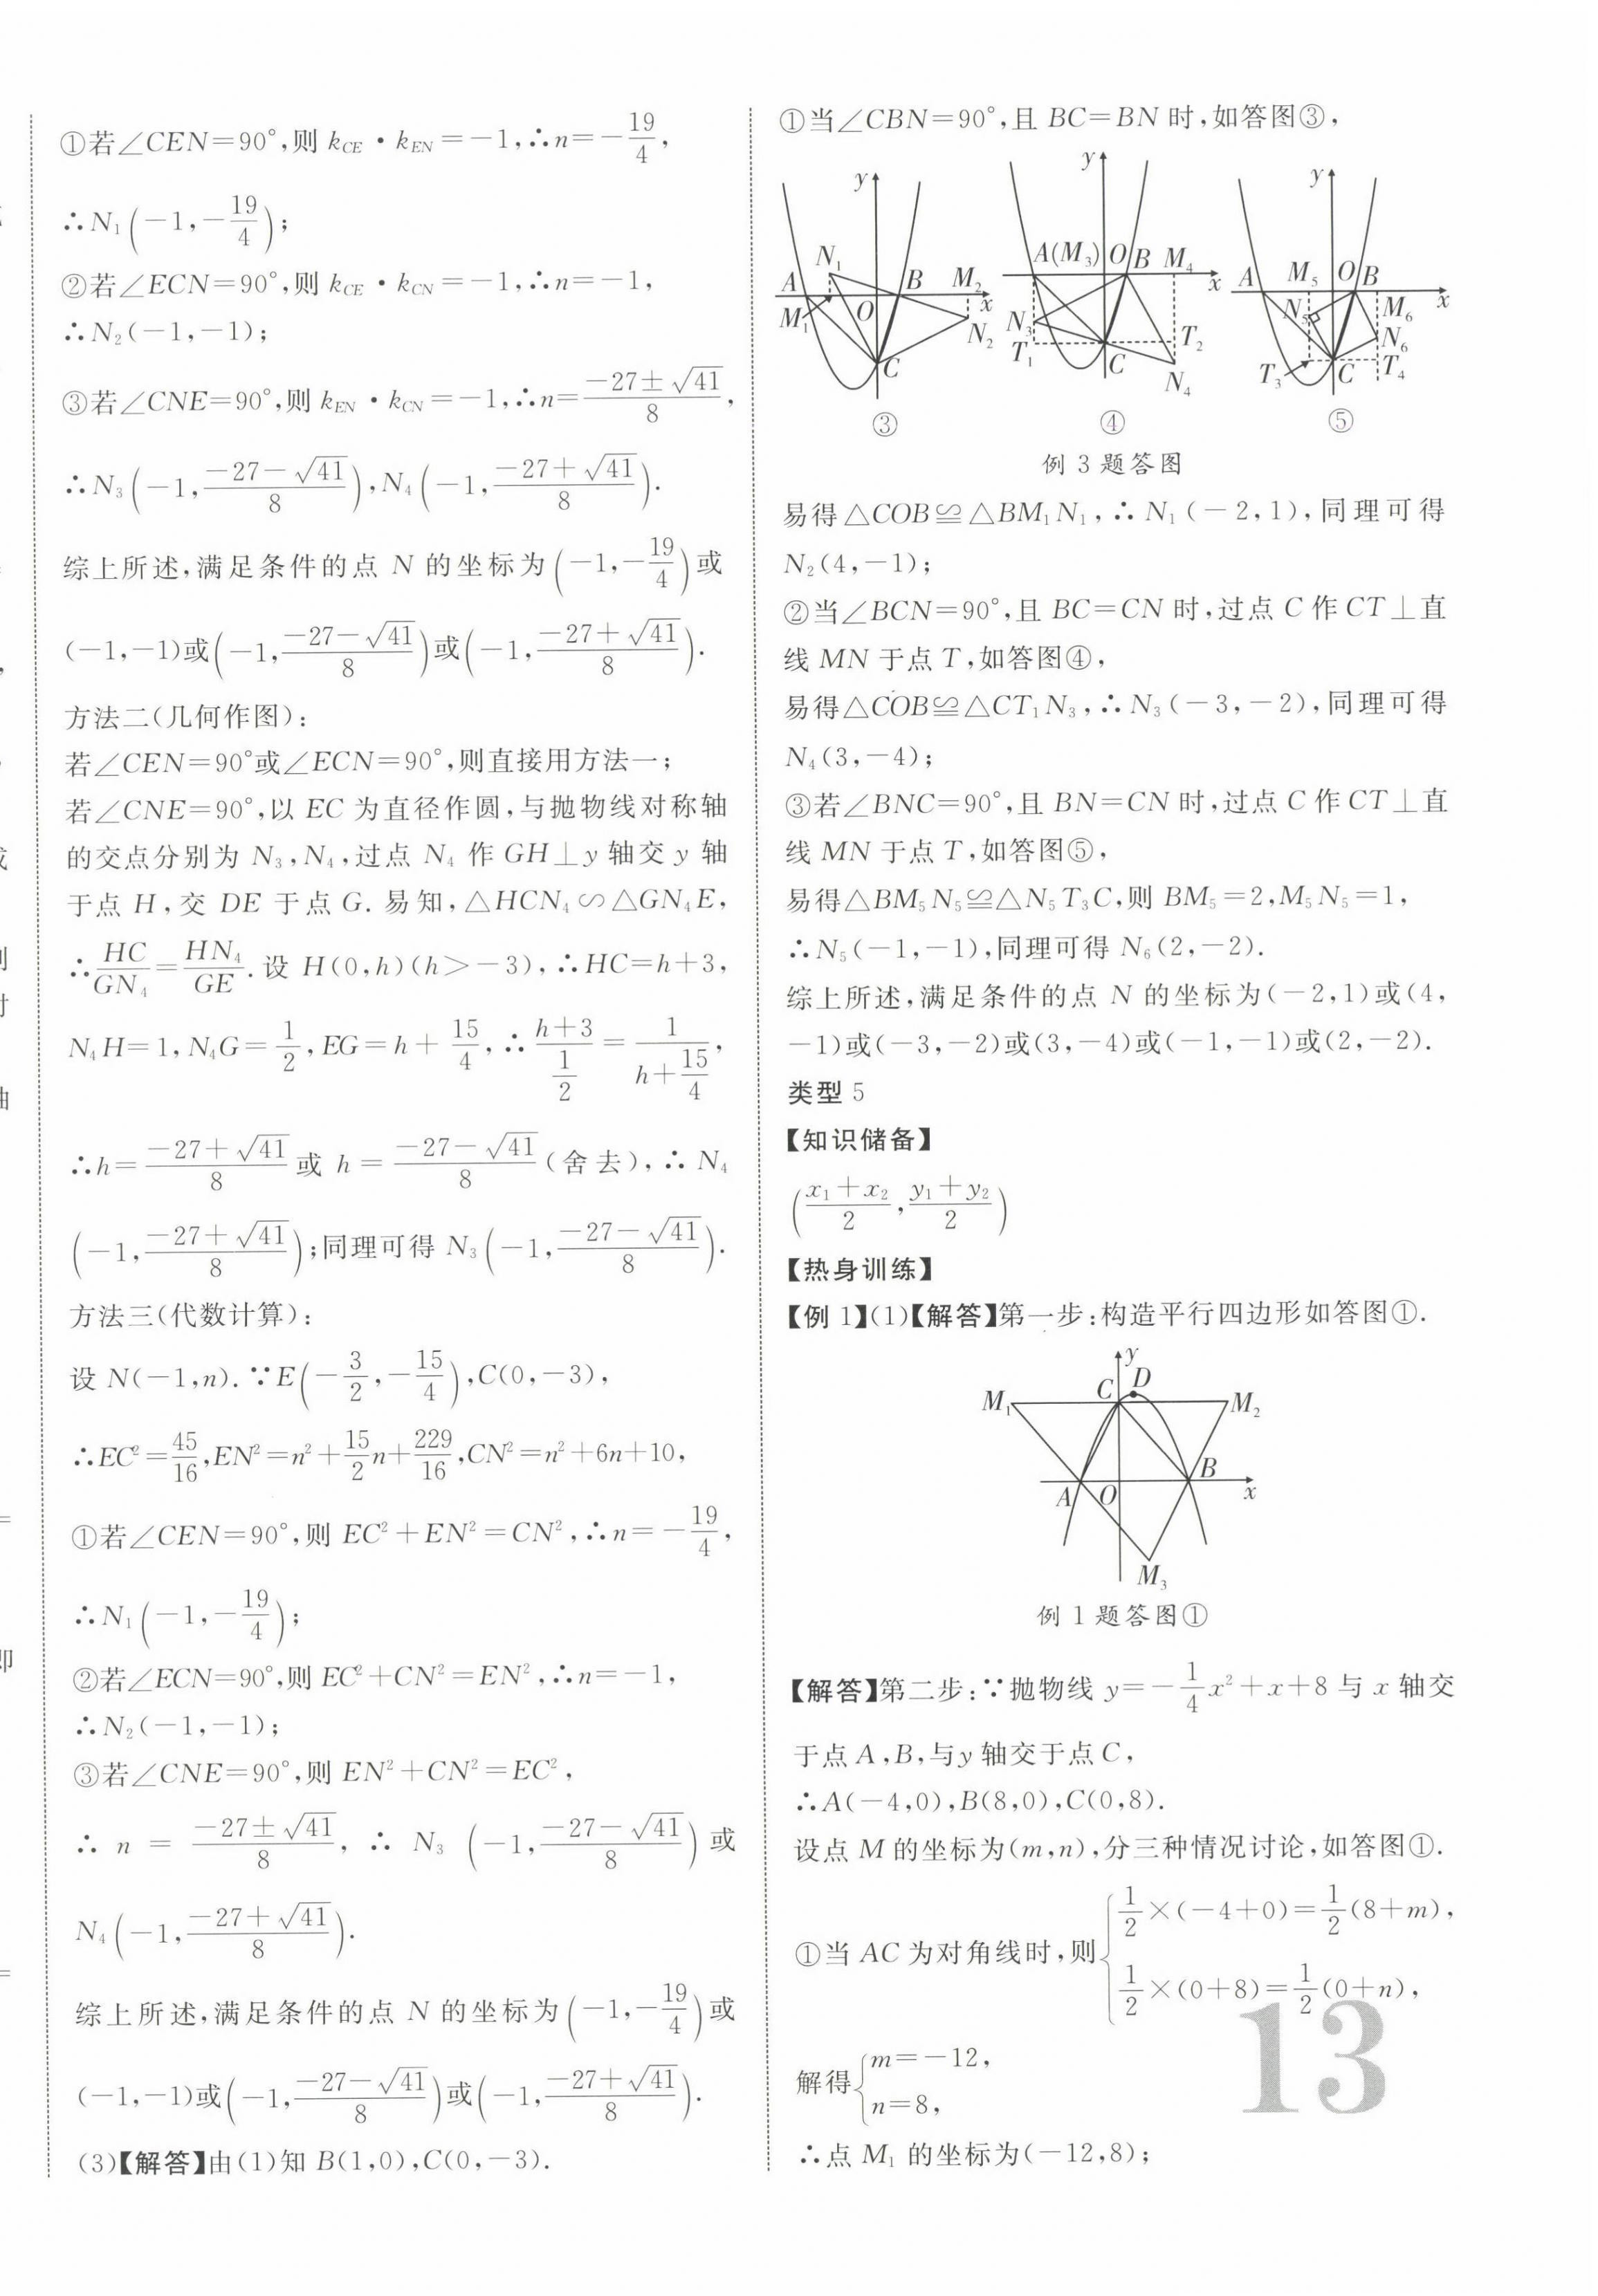 ①若∠CEN=90°,则 k_CE·k_EN=-1,∴n=-19/4,
∴N₁(-1,-19/4);
②若∠ECN=90°,则 k_CE·k_CN=-1,∴n=-1,
∴N₂(-1,-1);
③若∠CNE=90°,则 k_EN·k_CN=-1,∴n=(-27±√41)/8,
∴N₃(-1,(-27-√41)/8),N₄(-1,(-27+√41)/8).
综上所述,满足条件的点 N 的坐标为(-1,-19/4)或
(-1,-1)或(-1,(-27-√41)/8)或(-1,(-27+√41)/8).
方法二(几何作图):
若∠CEN=90°或∠ECN=90°,则直接用方法一;
若∠CNE=90°,以 EC 为直径作圆,与抛物线对称轴
的交点分别为 N₃,N₄,过点 N₄ 作 GH⊥y 轴交 y 轴
于点 H,交 DE 于点 G. 易知,△HCN₄∽△GN₄E,
∴HC/GN₄=HN₄/GE. 设 H(0,h)(h>-3),∴HC=h+3,
N₄H=1,N₄G=1/2,EG=h+15/4,∴(h+3)/(1/2)=1/(h+15/4),
∴h=(-27+√41)/8 或 h=(-27-√41)/8(舍去),∴N₄
(-1,(-27+√41)/8);同理可得 N₃(-1,(-27-√41)/8).
方法三(代数计算):
设 N(-1,n).∵E(-3/2,-15/4),C(0,-3),
∴EC²=45/16,EN²=n²+15/2n+229/16,CN²=n²+6n+10,
①若∠CEN=90°,则 EC²+EN²=CN²,∴n=-19/4,
∴N₁(-1,-19/4);
②若∠ECN=90°,则 EC²+CN²=EN²,∴n=-1,
∴N₂(-1,-1);
③若∠CNE=90°,则 EN²+CN²=EC²,
∴ n = (-27±√41)/8, ∴ N₃(-1,(-27-√41)/8)或
N₄(-1,(-27+√41)/8).
综上所述,满足条件的点 N 的坐标为(-1,-19/4)或
(-1,-1)或(-1,(-27-√41)/8)或(-1,(-27+√41)/8).
(3)【解答】由(1)知 B(1,0),C(0,-3).
①当∠CBN=90°,且 BC=BN 时,如答图③,
y A N₁ B M₂ x M₁ O N₂ C
y A(M₃) O B M₄ x N₃ T₁ T₂ C N₄
y A M₅ O B x N₅ M₆ N₆ T₃ C T₄
③ ④ ⑤
例 3 题答图
易得△COB≌△BM₁N₁,∴N₁(-2,1),同理可得
N₂(4,-1);
②当∠BCN=90°,且 BC=CN 时,过点 C 作 CT⊥直
线 MN 于点 T,如答图④,
易得△COB≌△CT₁N₃,∴N₃(-3,-2),同理可得
N₄(3,-4);
③若∠BNC=90°,且 BN=CN 时,过点 C 作 CT⊥直
线 MN 于点 T,如答图⑤,
易得△BM₅N₅≌△N₅T₃C,则 BM₅=2,M₅N₅=1,
∴N₅(-1,-1),同理可得 N₆(2,-2).
综上所述,满足条件的点 N 的坐标为(-2,1)或(4,
-1)或(-3,-2)或(3,-4)或(-1,-1)或(2,-2).
类型 5
【知识储备】
((x₁+x₂)/2,(y₁+y₂)/2)
【热身训练】
【例 1】(1)【解答】第一步:构造平行四边形如答图①.
y C D M₁ M₂ B A O x M₃
例 1 题答图①
【解答】第二步:∵抛物线 y=-1/4x²+x+8 与 x 轴交
于点 A,B,与y 轴交于点 C,
∴A(-4,0),B(8,0),C(0,8).
设点 M 的坐标为(m,n),分三种情况讨论,如答图①.
①当 AC 为对角线时,则{1/2×(-4+0)=1/2(8+m),
1/2×(0+8)=1/2(0+n),
解得{m=-12,
n=8,
∴点 M₁ 的坐标为(-12,8);
13